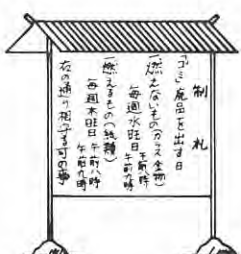 制札
「ゴミ」廃品を出す日
一燃えないもの(ガラス金物)
毎週水曜日 午前八時
午前九時
一燃えるもの(紙類)
毎週木曜日 午前八時
午前九時
右の通り相守る可の事